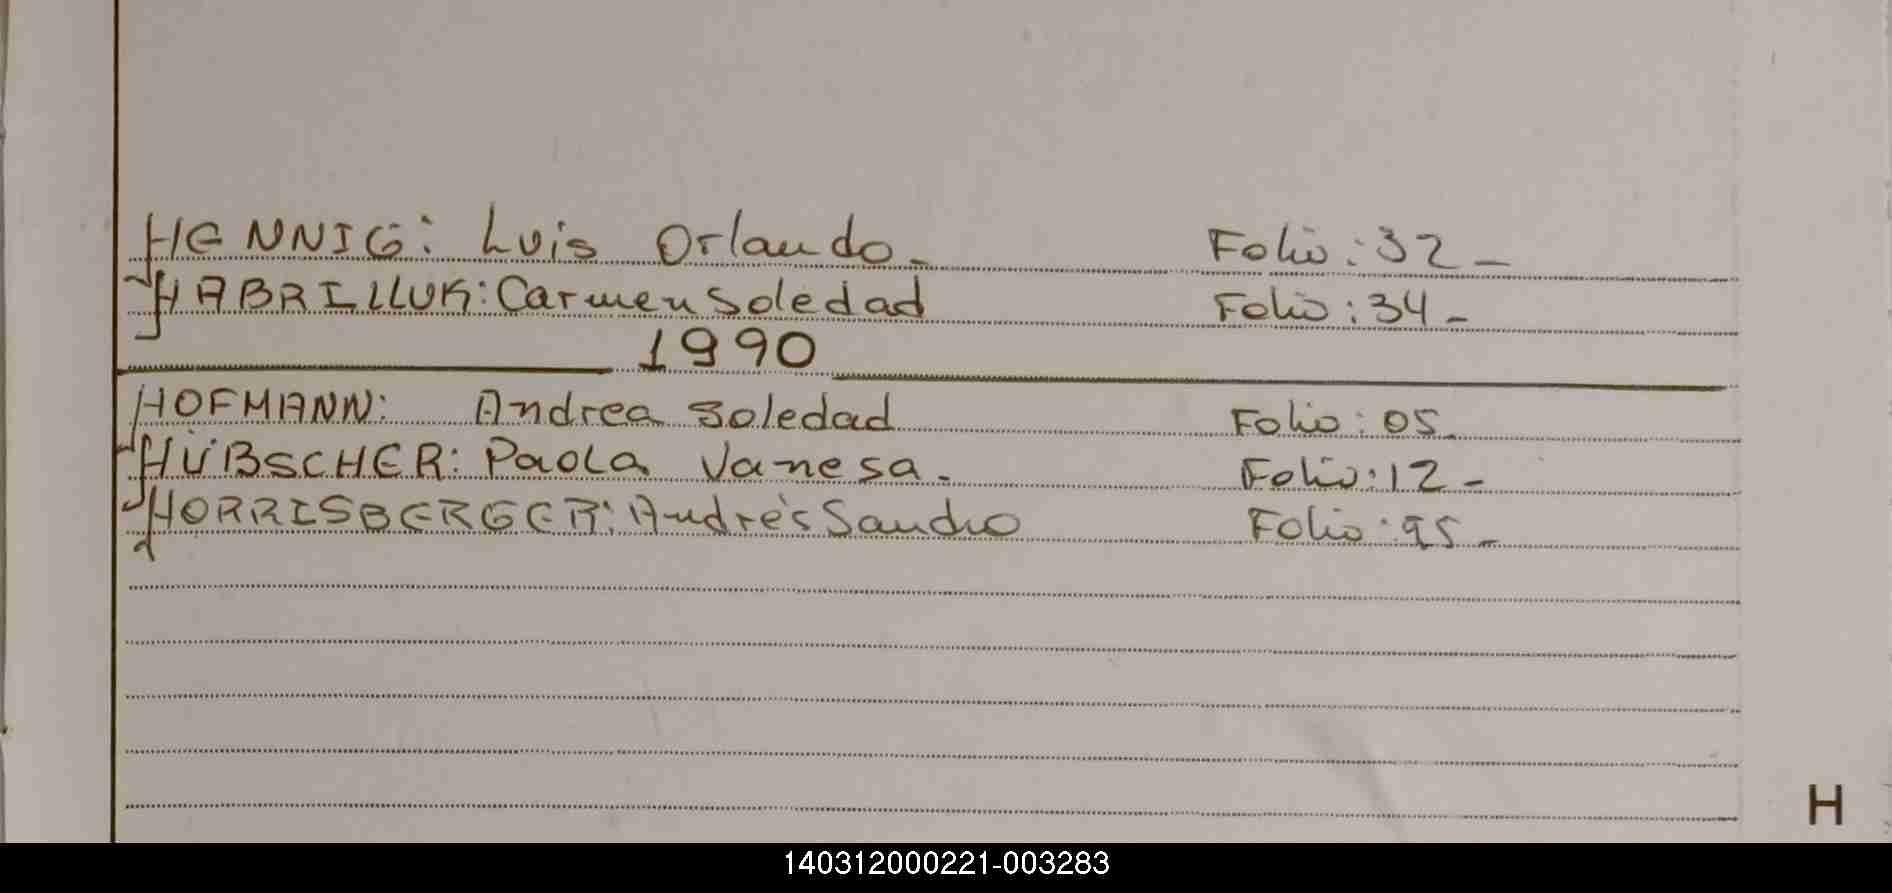 HENNIG: Luis Orlando. Folio: 32 -
HABRILLUK: Carmen Soledad Folio: 34 -
1990
HOFMANN: Andrea Soledad Folio: 05 -
HÜBSCHER: Paola Vanesa. Folio: 12 -
HORRISBERGER: Andrés Sandro Folio: 95 -
H
140312000221-003283